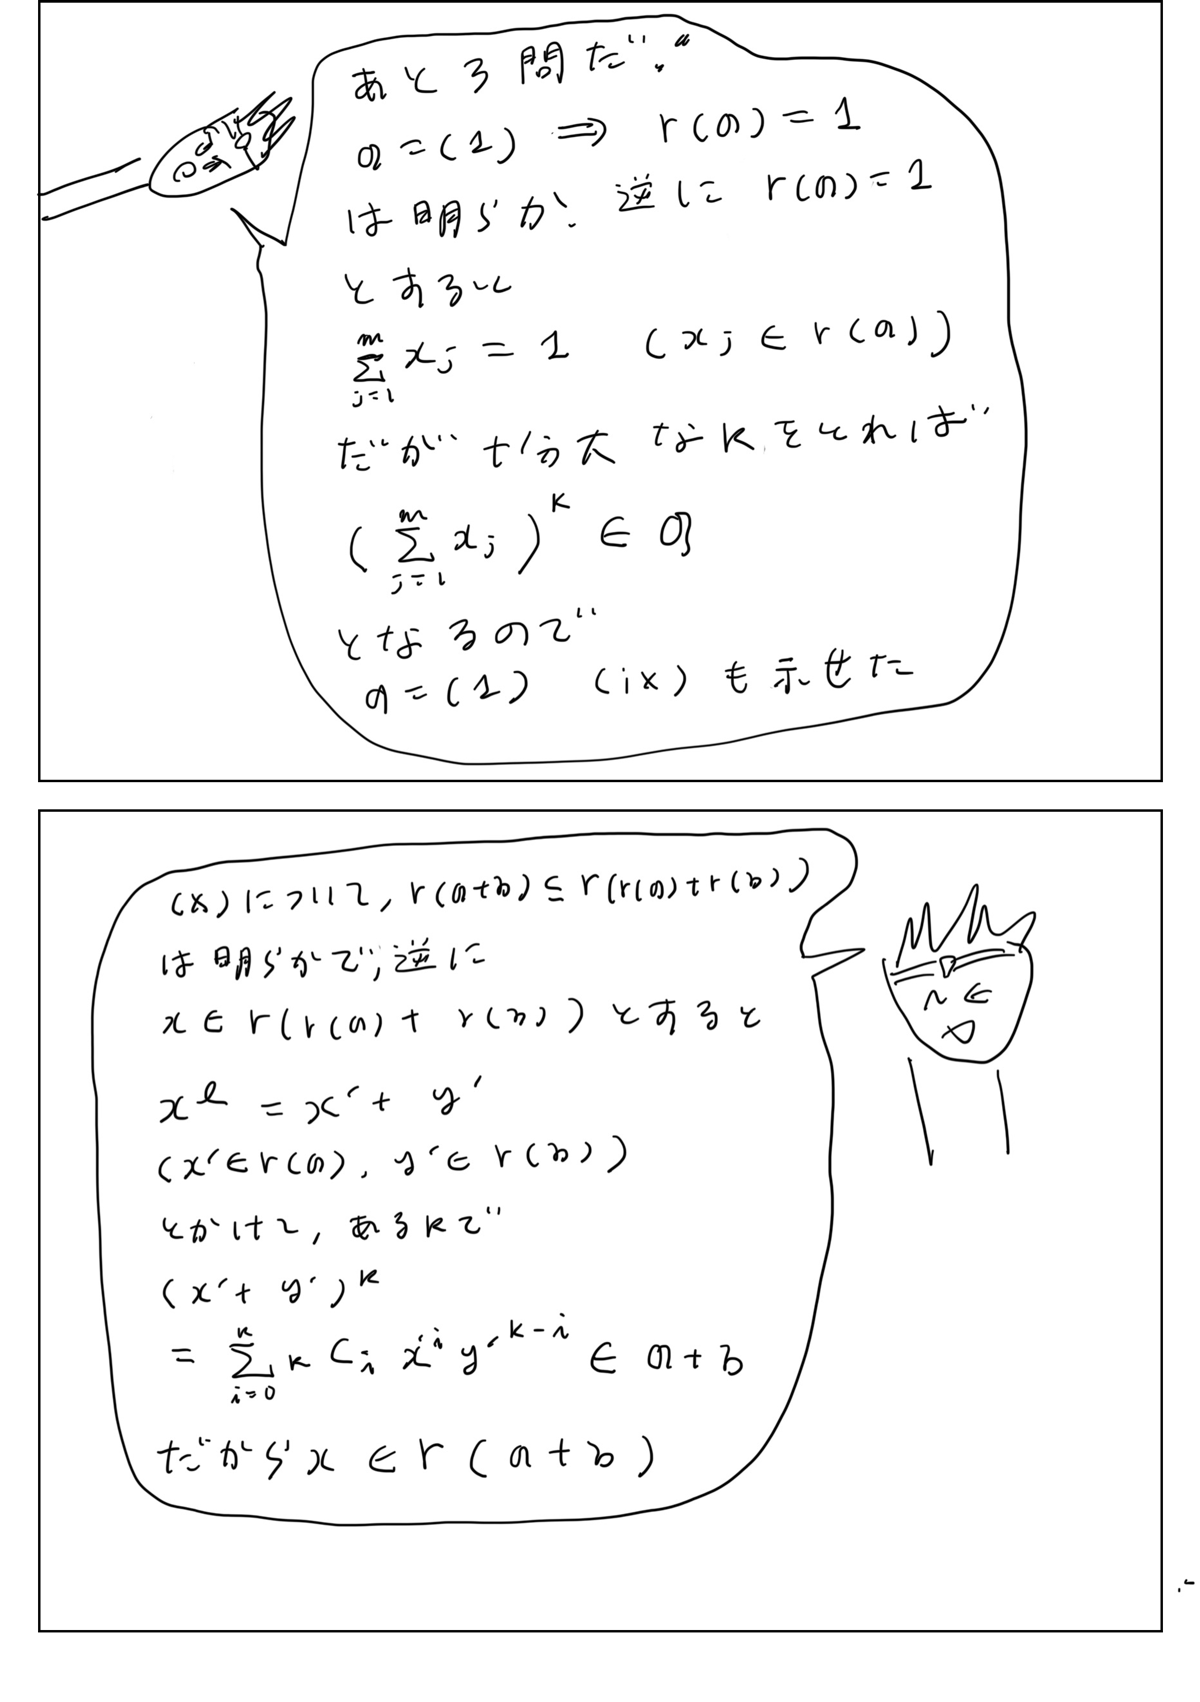 あと3問だ!!
𝔞=(1) ⇒ r(𝔞)=1
は明らか. 逆に r(𝔞)=1
とすると
∑_{j=1}^{m} x_j = 1 (x_j ∈ r(𝔞))
だが十分大なkをとれば
(∑_{j=1}^{m} x_j)^k ∈ 𝔞
となるので
𝔞=(1) (ix)も示せた
(x)について, r(𝔞+𝔟) ⊆ r(r(𝔞)+r(𝔟))
は明らかで,逆に
x ∈ r(r(𝔞)+r(𝔟))とすると
x^l = x'+y'
(x'∈r(𝔞), y'∈r(𝔟))
とかけて, あるkで
(x'+y')^k
= ∑_{i=0}^{k} kC_i x'^i y'^{k-i} ∈ 𝔞+𝔟
だからx ∈ r(𝔞+𝔟)